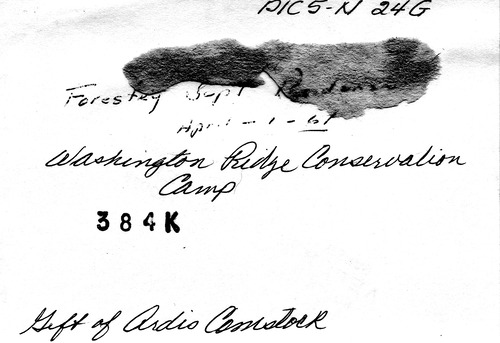 PIC 5-N 24G
Forestry Supt Residence
April - 1 - 61
Washington Ridge Conservation
Camp
384K
Gift of Ardis Comstock